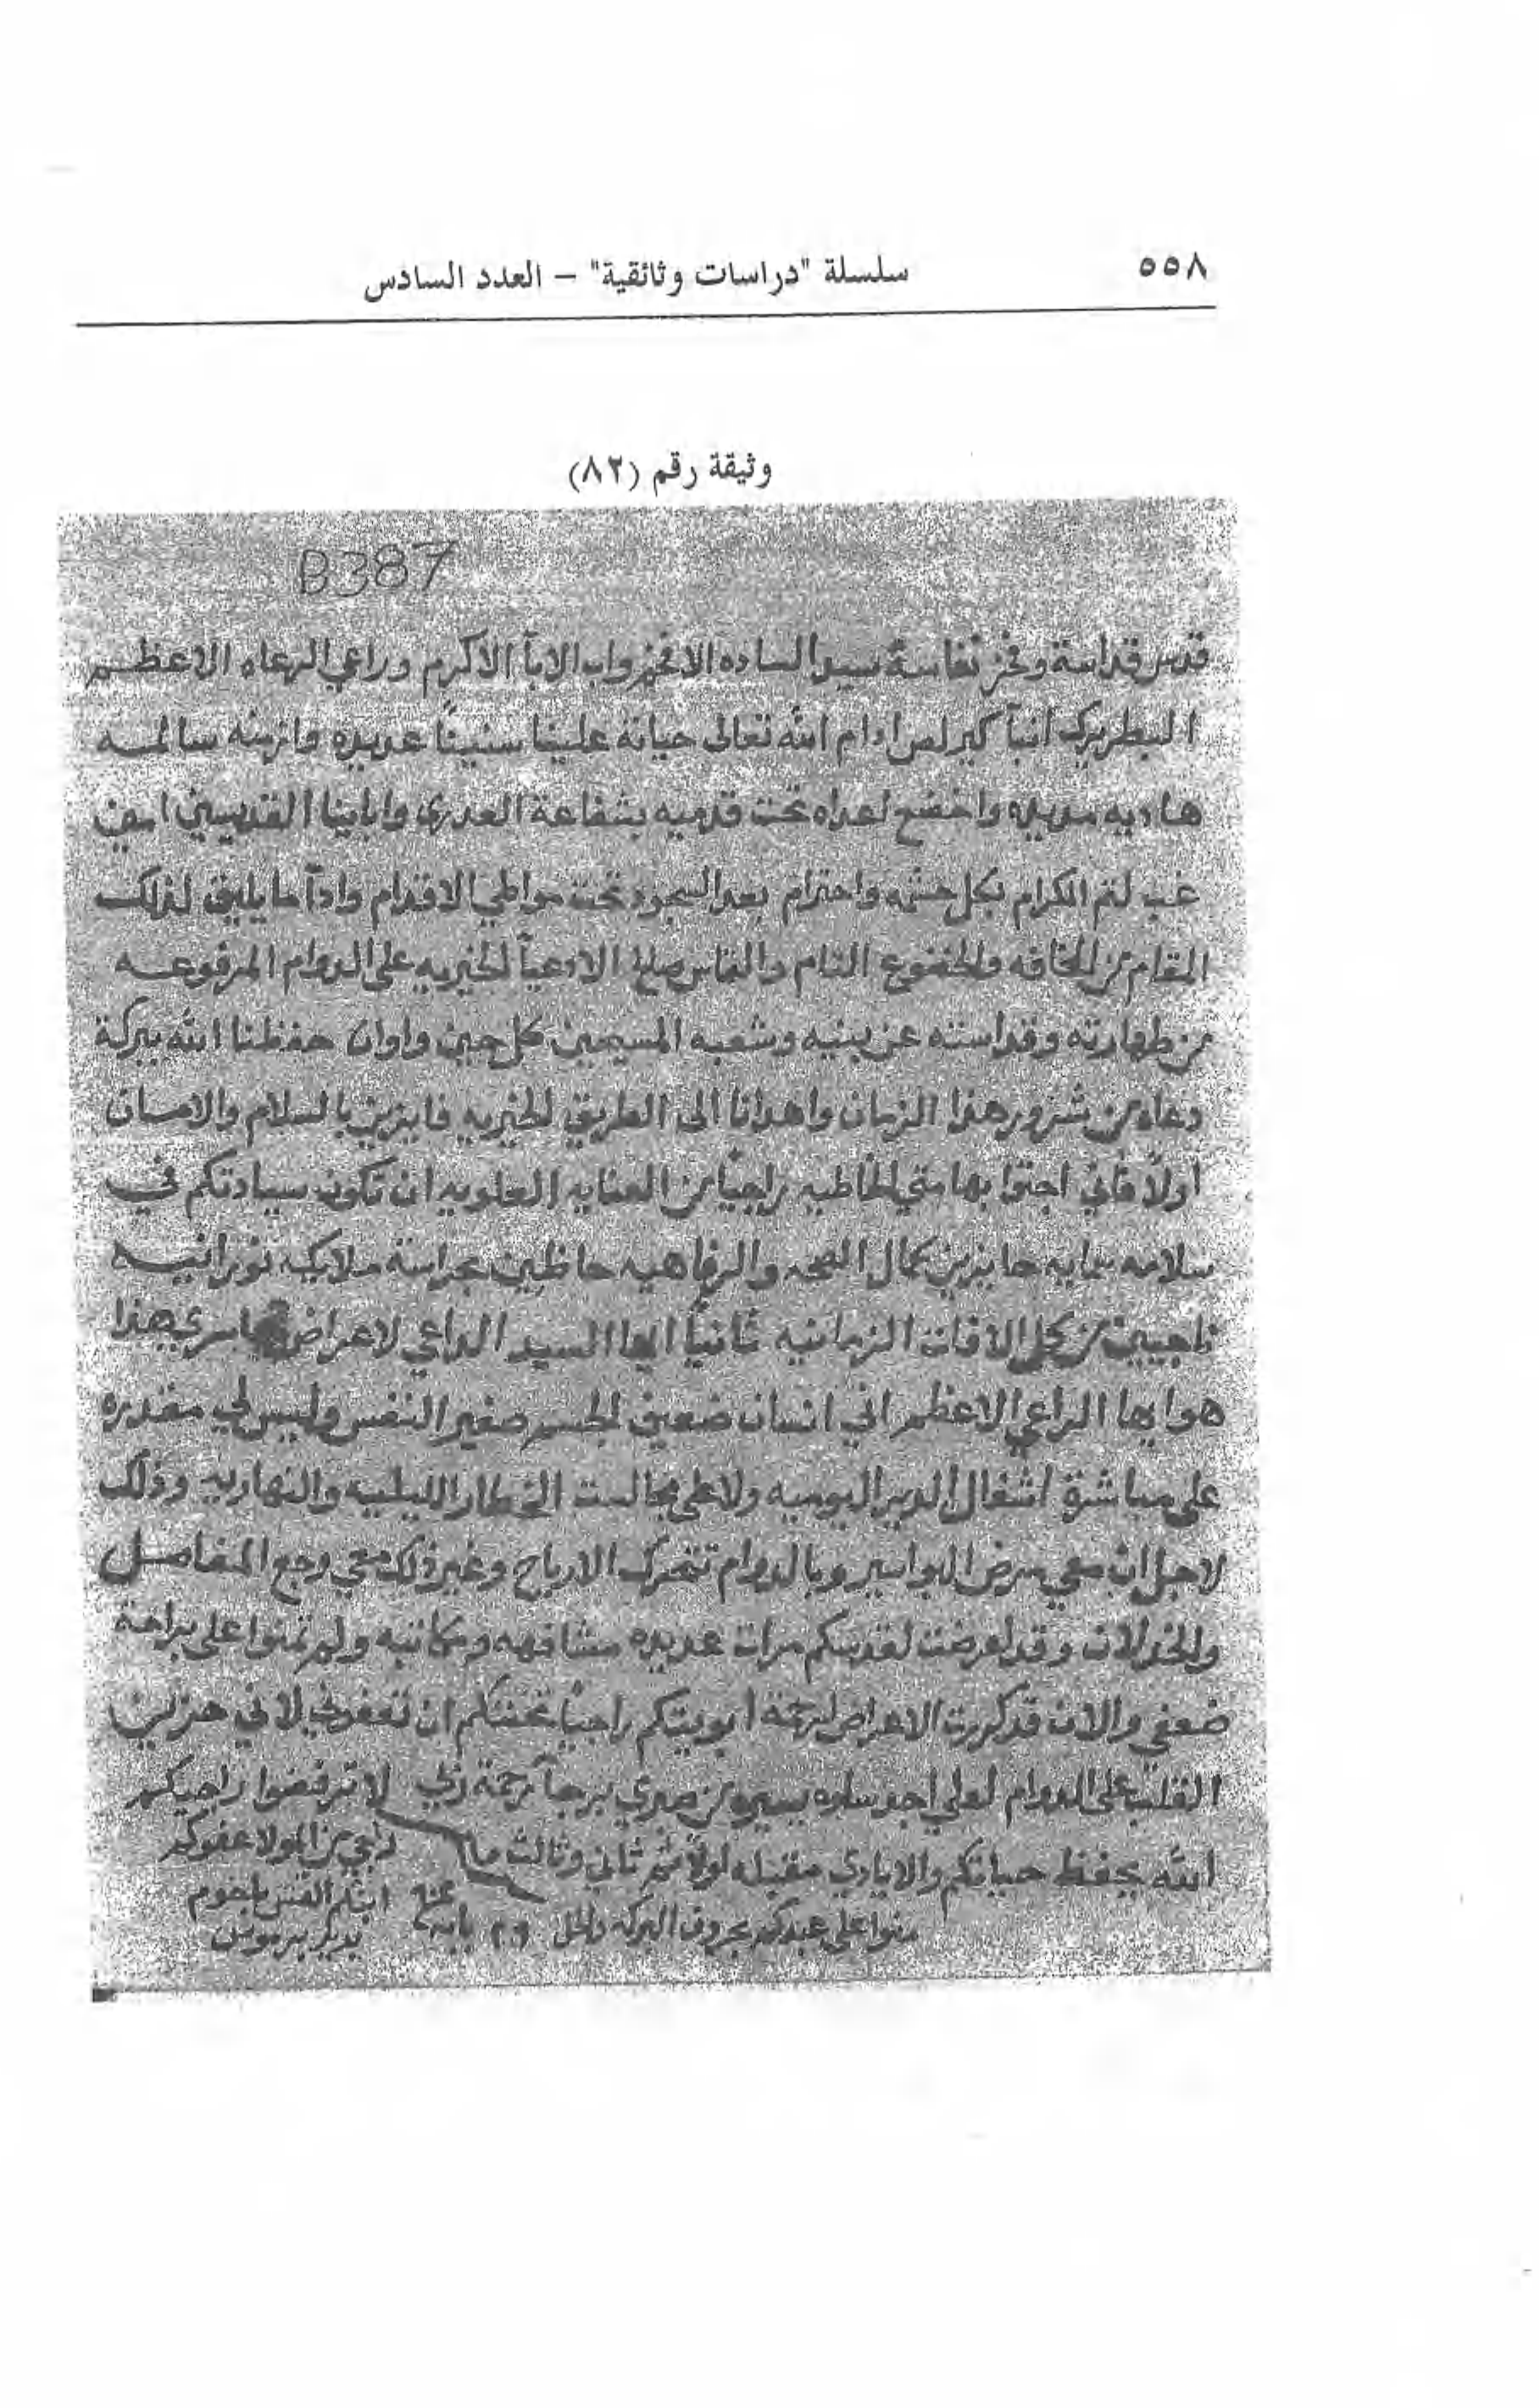 ٥٥٨
سلسلة "دراسات وثائقية" – العدد السادس
وثيقة رقم (٨٢)
B387
قدس قداسة وفخر نفاسة سيد الساده الافخم واب الابآ الاكرم وراعي الرعاه الاعظم
البطريرك انبآ كيرلس ادام الله تعالى حياته علينا سنينًا عديده وازمنه سالمه
هاديه مديده واخضع اعداه تحت قدميه بشفاعة العدرى وابابنا القديسين امين
غب لتم الكرام بكل حشمه واحترام بعد السجود تحت مواطي الاقدام وادآ ما يليق لذلك
المقام من المخافه والخضوع التام والتماس صلح الادعيآ الخيريه على الدوام المرفوعه
من طهارته وقداسته عن بنيه وشعبه المسيحيين كل حين واوان حفظنا الله ببركة
دعاه من شرور هذا الزمان واهدانا الى الطريق الخيريه فايزين بالسلام والامان
اولاً فاني اجتوا بهامتي الخاطيه راجيًا من العنايه العلويه ان تكون سيادتكم في
سلامه حايزين كمال الصحه والرفاهيه بحراسة ملايكه نورانيه
ناجيين من كل الافات الزمانيه ثانيًا ايها السيد الداعي لاعراض هذا
هو ايها الراعي الاعظم اني انسان ضعيف الجسم صغير النفس وليس لي مقدره
على مباشرة اشغال الدير اليوميه ولا على مجالست الخطار الليليه والنهاريه وذلك
لاجل ان معي مرض البواسير وبالدوام تتحرك الارياح وغير ذلك معي وجع المفاصل
والخدلان وقد اعرضت لقدسكم مرات عديده مشافهه ومكاتبه ولم تمنوا على براحة
ضعفي والان قد كررت الاعراض لرحمة ابويتكم راجيًا تحننكم ان تعفوني لاني حزين
القلب على الدوام لعلي اجد سلوه يسيره من ضري برجآ رحمة ربي لا ترفضوا راجيكم
الله يحفظ حياتكم والايادي مقبله اولاً ثم ثاني وثالث ما
منوا على عبدكم بحروف البركه داخل ٢٩ بابه سنه
راجي من المولا عفوكم
ابنكم القس باخوم
بدير برموس